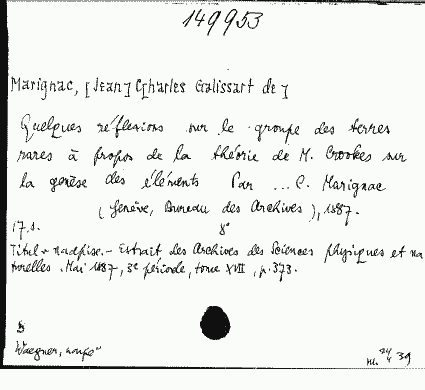 149953
Marignac, [Jean] C[harles Galissart de]
Quelques réflexions sur le groupe des terres
rares à propos de la théorie de M. Crookes sur
la genèse des éléments Par ... C. Marignac
(Genève, Bureau des Archives), 1887.
17 s. 8°
Titul + nadpise. - Extrait des Archives des Sciences physiques et na
turelles. Mai 1887, 3e période, tome XVII, p. 373.
39